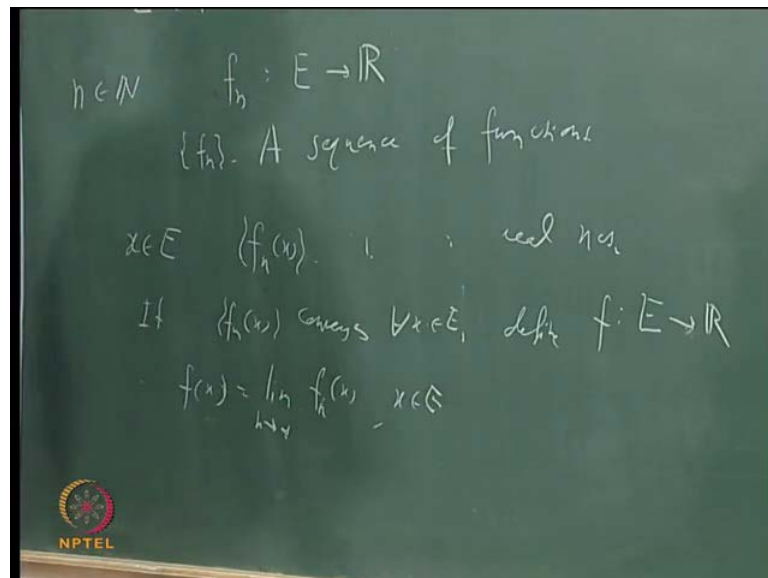 n ∈ ℕ f_n : E → ℝ
{f_n}. A sequence of functions.
x ∈ E {f_n(x)}. " " real nos.
If {f_n(x)} converges ∀x ∈ E, define f : E → ℝ
f(x) = lim_{n→∞} f_n(x), x ∈ E
NPTEL